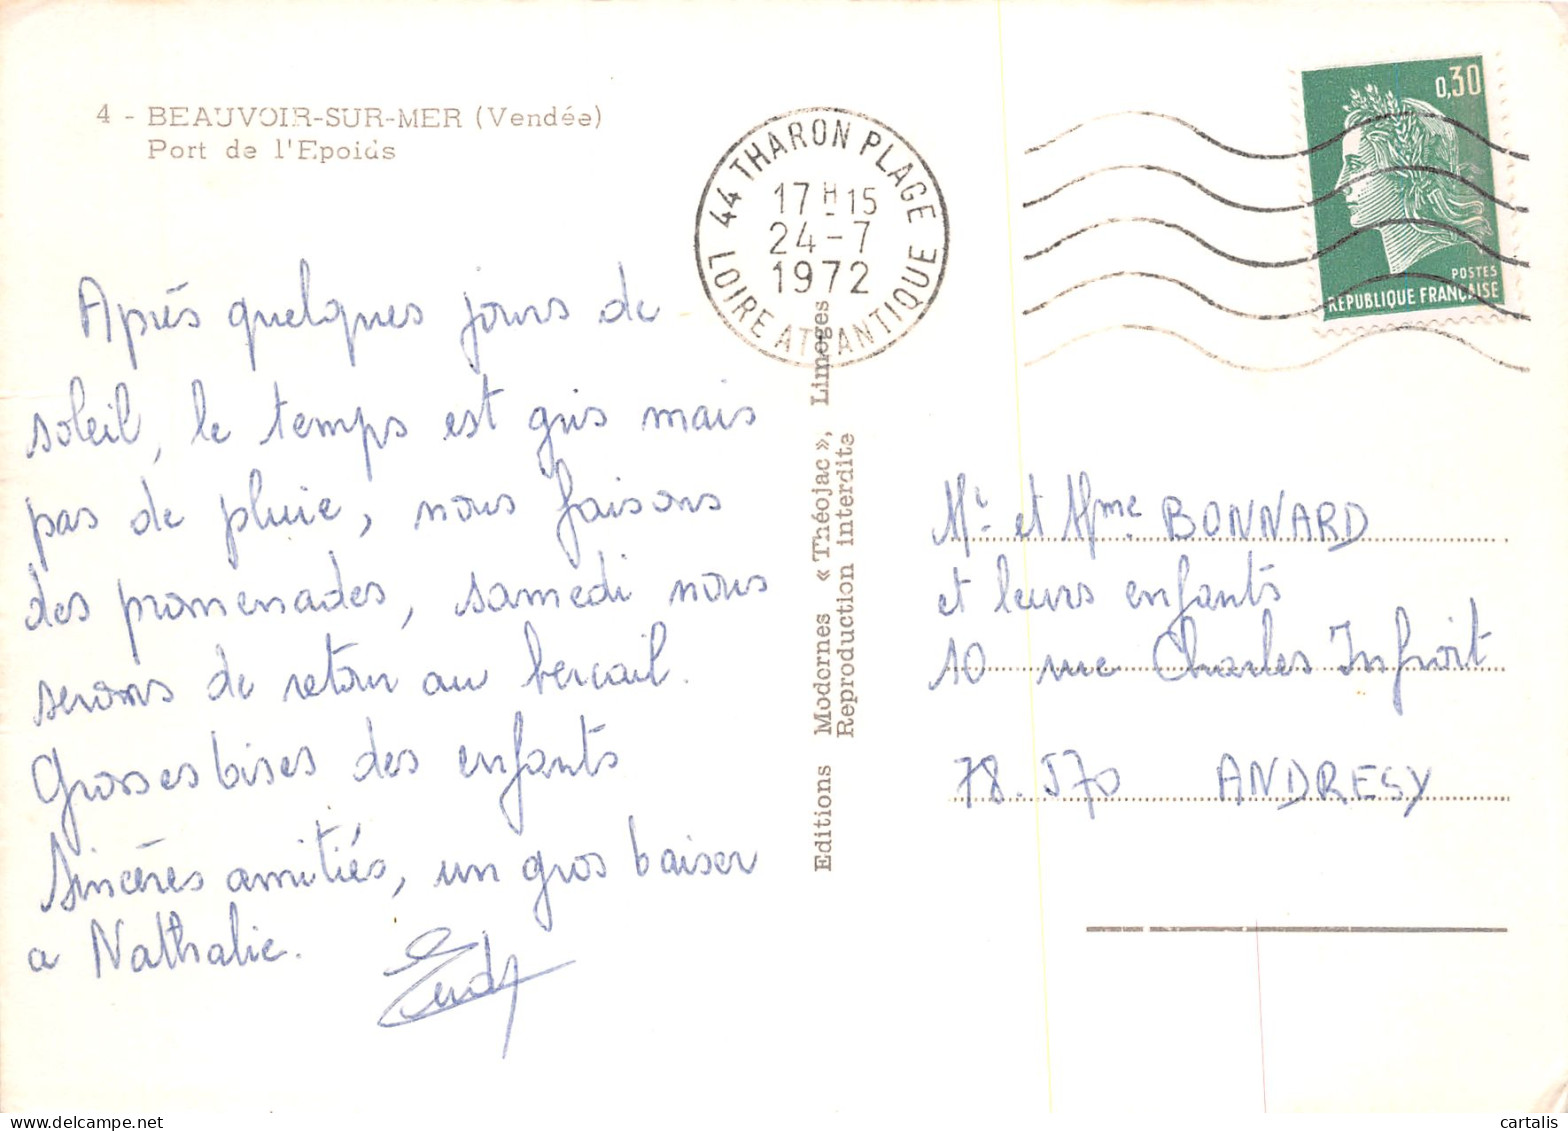 4 - BEAUVOIR-SUR-MER (Vendée)
Port de l'Epoids
44 THARON PLAGE
17H15
24-7
1972
LOIRE ATLANTIQUE
0,30
POSTES
REPUBLIQUE FRANÇAISE
Après quelques jours de
soleil, le temps est gris mais
pas de pluie, nous faisons
des promenades, samedi nous
serons de retour au bercail.
Grosses bises des enfants
Sincères amitiés, un gros baiser
a Nathalie.
Editions Modernes « Théojac », Limoges
Reproduction interdite
Mr. et Mme BONNARD
et leurs enfants
10 rue Charles Infroit
78.570 ANDRESY
cartalis